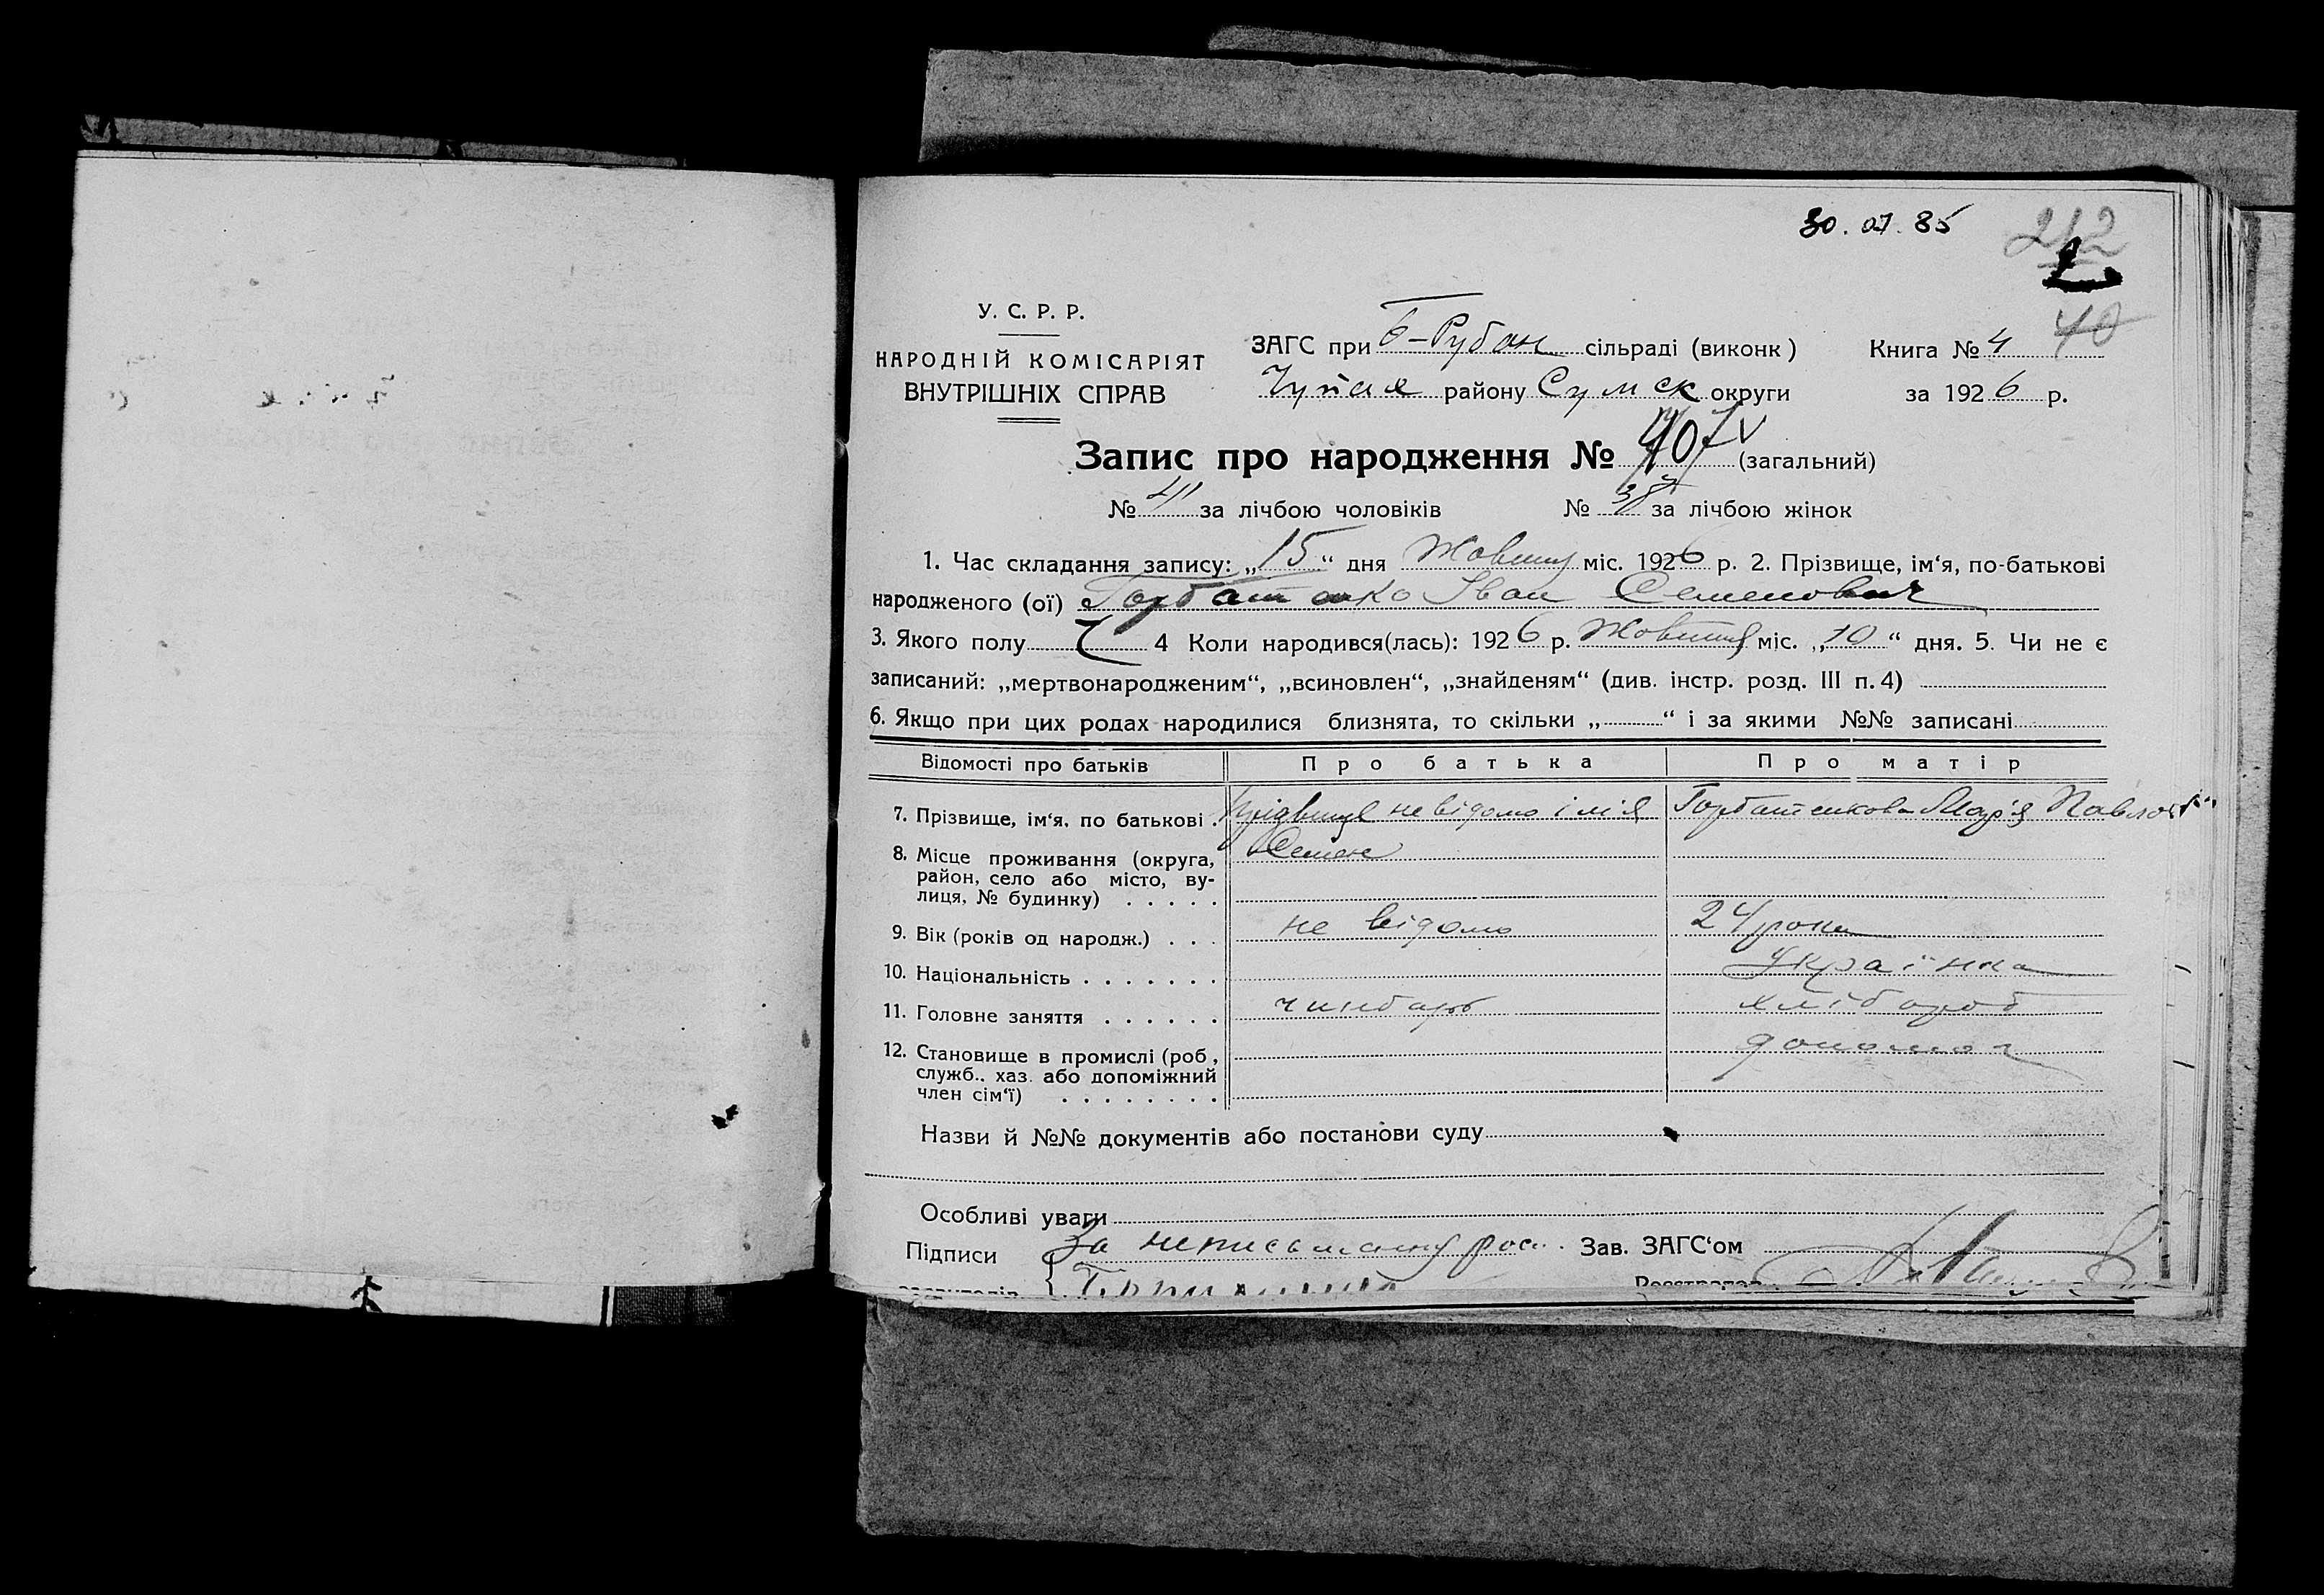 30.07.85
212
У. С. Р. Р.
40
НАРОДНІЙ КОМІСАРІЯТ
ВНУТРІШНІХ СПРАВ
ЗАГС при Б-Рубан сільраді (виконк) Книга № 4
району Сумск округи за 1926 р.
Запис про народження № (загальний)
№ 41 за лічбою чоловіків № за лічбою жінок
1. Час складання запису: „15“ дня Жовтня міс. 1926 р. 2. Прізвище, ім‘я, по-батькові
народженого (ої) Горбатенко Іван Семенович
3. Якого полу Ч 4 Коли народився(лась): 1926 р. Жовтня міс. „10“ дня. 5. Чи не є
записаний: „мертвонародженим“, „всиновлен“, „знайденям“ (див. інстр. розд. III п. 4)
6. Якщо при цих родах народилися близнята, то скільки „ “ і за якими №№ записані
Відомості про батьків Про батька Про матір
7. Прізвище, ім‘я, по батькові . Прізвище не відомо імія Горбатенкова Мар‘я
8. Місце проживання (округа, Семен
район, село або місто, ву-
лиця, № будинку) . . . . .
9. Вік (років од народж.) . . . не відомо 24 роки
10. Національність . . . . . . . Українка
11. Головне заняття . . . . . . чинбарь хлібороб
12. Становище в промислі (роб., допомог
служб., хаз. або допоміжний
член сім‘ї) . . . . . . . .
Назви й №№ документів або постанови суду
Особливі уваги
Підписи За неписьменну рос. Зав. ЗАГС‘ом